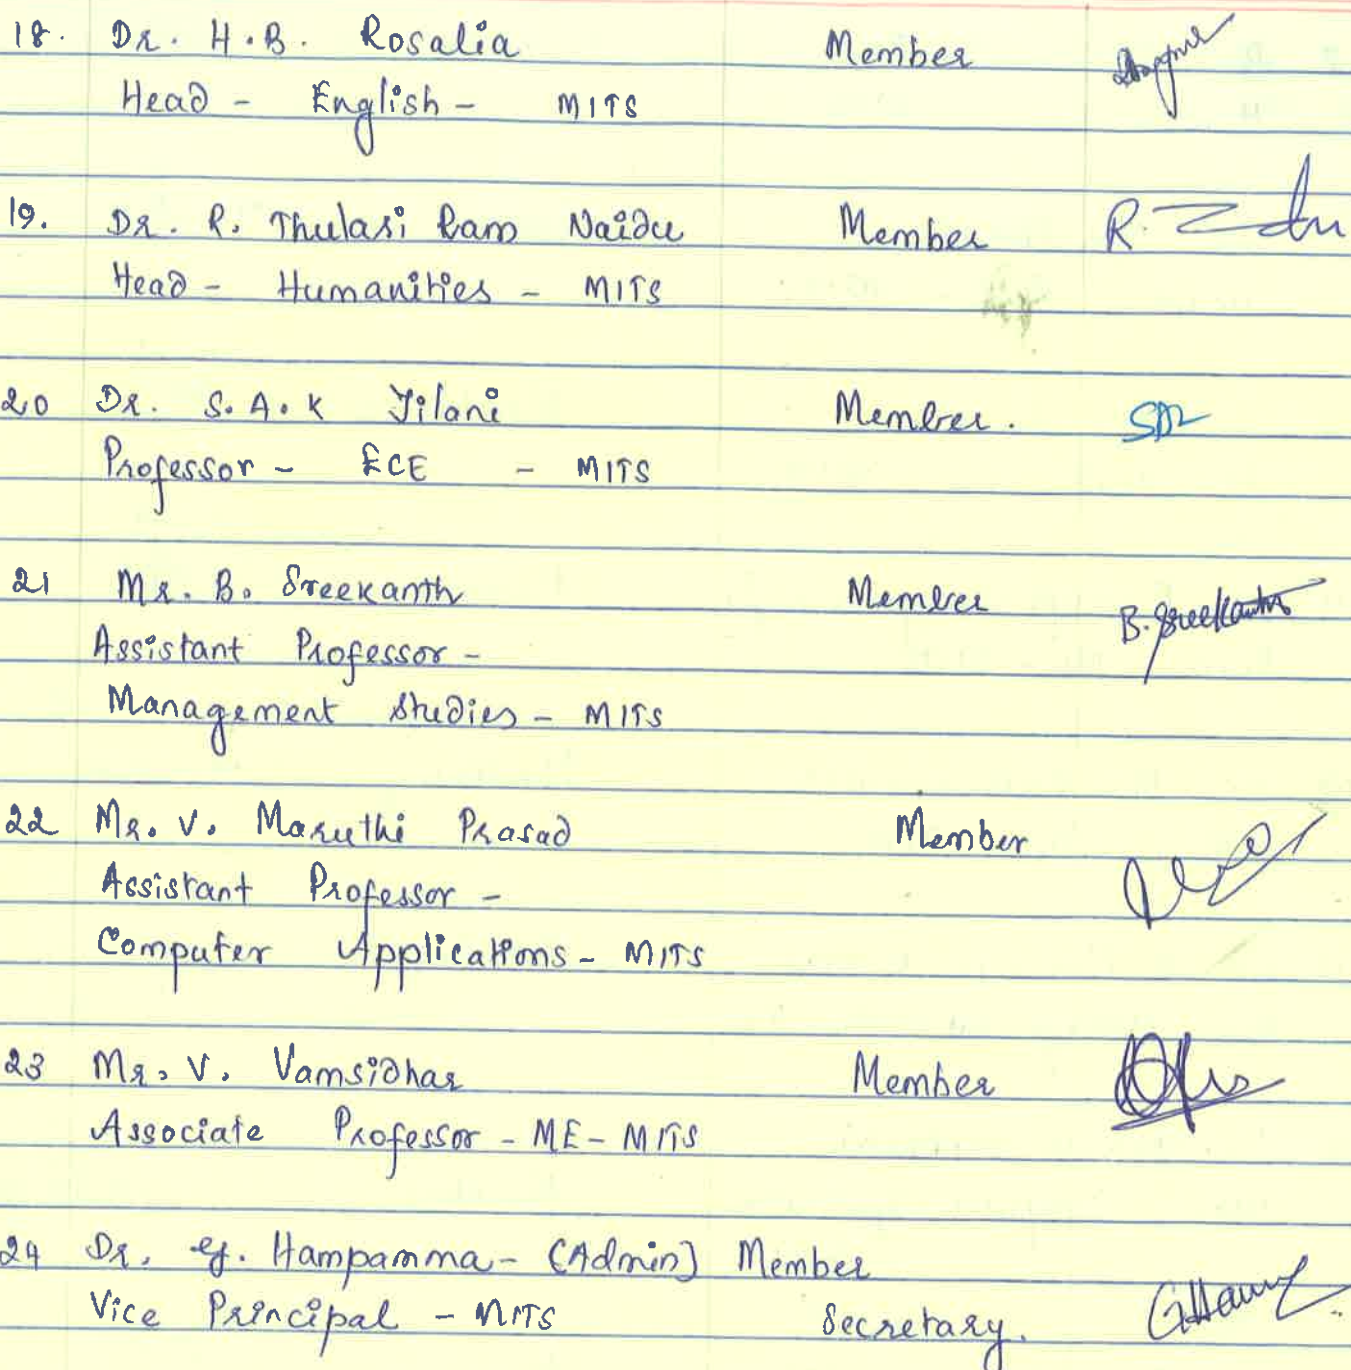 18. Dr. H.B. Rosalia Member
Head - English - MITS
19. Dr. R. Thulasi Ram Naidu Member R.
Head - Humanities - MITS
20 Dr. S.A.K Jilani Member.
Professor - ECE - MITS
21 Mr. B. Sreekanth Member B. Sreekanth
Assistant Professor -
Management Studies - MITS
22 Mr. V. Maruthi Prasad Member
Assistant Professor -
Computer Applications - MITS
23 Mr. V. Vamsidhar Member
Associate Professor - ME - MITS
24 Dr. G. Hampamma - (Admin) Member
Vice Principal - MITS Secretary.